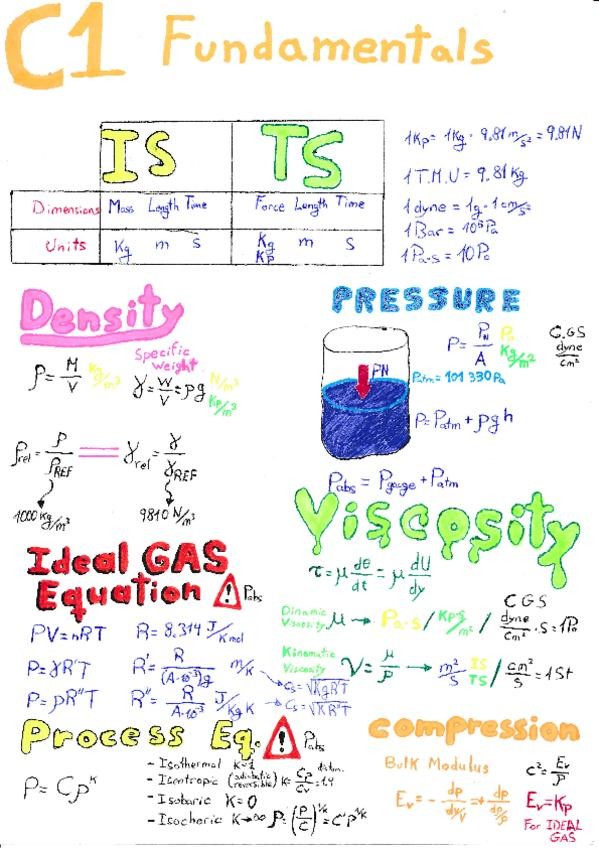 C1 Fundamentals
IS TS
Dimensions Mass Length Time Force Length Time
Units Kg m s Kg m s
Kp
1Kp = 1Kg · 9.81 m/s² = 9.81N
1 T.M.U = 9.81 Kg
1 dyne = 1g · 1 cm/s²
1 Bar = 10⁵ Pa
1 Pa·s = 10 Po
Density
ρ = M/V Kg/m³
Specific weight
γ = W/V = ρg N/m³
Kp/m³
ρrel = ρ/ρREF = γrel = γ/γREF
1000 Kg/m³ 9810 N/m³
PRESSURE
PN
P = PN/A Pa
Kg/m²
C.GS
dyne/cm²
Patm = 101 330 Pa
P = Patm + ρgh
Pabs = Pgauge + Patm
Viscosity
τ = μ dθ/dt = μ dU/dy
Dinamic Viscosity μ → Pa·s / Kp·s/m² / dyne/cm² · s = 1Po
CGS
Kinematic Viscosity ν = μ/ρ → m²/s IS TS / cm²/s = 1St
Ideal GAS
Equation ! Pabs
PV = nRT R = 8.314 J/K mol
P = γR'T R' = R/(A·10⁻³)g m/K → Cs = √KgR'T
P = ρR"T R" = R/A·10⁻³ J/Kg K → Cs = √KR"T
Process Eq. ! Pabs
P = Cρᴷ
- Isothermal K=1
- Isentropic (adiabatic reversible) K = Cp/Cv = 1.4
- Isobaric K=0
- Isochoric K→∞ ρ = (P/C)^1/K = C'P^1/K
compression
Bulk Modulus
C² = Ev/ρ
Ev = - dp/dV/V = + dp/dρ/ρ
Ev = Kp
For IDEAL GAS